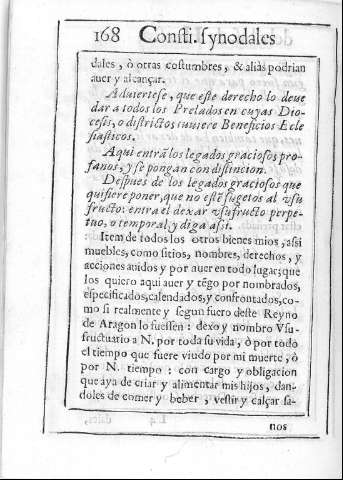 168 Consti. synodales
dales, ò otras costumbres, & aliàs podrian
auer y alcançar.
Aduiertese, que este derecho lo deue
dar a todos los Prelados en cuyas Dio-
cesis, o districtos tuuiere Beneficios Ecle
siasticos.
Aqui entrã los legados graciosos pro-
fanos, y se pongan con distincion.
Despues de los legados graciosos que
quisiere poner, que no estẽ sugetos al vsu
fructo: entra el dexar vsufructo perpe-
tuo, o temporal y diga assi.
Item de todos los otros bienes mios, assi
muebles, como sitios, nombres, derechos, y
acciones auidos y por auer en todo lugar; que
los quiero aqui auer y tẽgo por nombrados,
especificados, calendados, y confrontados, co-
mo si realmente y segun fuero deste Reyno
de Aragon lo fuessen: dexo y nombro Vsu-
fructuario a N. por toda su vida, ò por todo
el tiempo que fuere viudo por mi muerte, ò
por N. tiempo: con cargo y obligacion
que aya de criar y alimentar mis hijos, dan-
doles de comer y beber, vestir y calçar sa-
nos